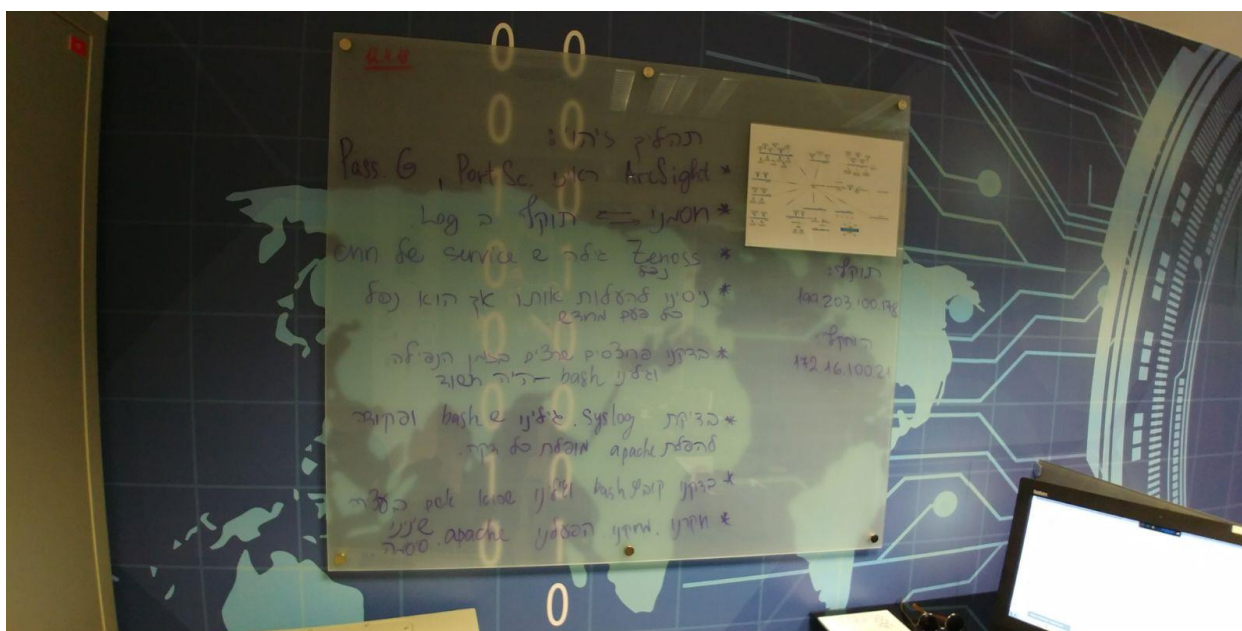 תהליך זיהוי:
* ArcSight ראינו Port Sc. , Pass. G
* חסמנו תוקף ב Log.
* Zenoss גילה ש service של
נפל
* ניסינו להעלות אותו אך הוא נפל
כל פעם מחדש
* בדקנו פרוצסים שרצים בזמן הנפילה
וגילינו bash – היה חשוד
* בדיקת Syslog. גילינו ש bash ופקודה
להפלת apache מופלת כל דקה.
* בדקנו קובץ bash וגילינו שהוא אשם בבעיה
* חקרנו. מחקנו. הפעלנו apache. שינינו
סיסמה
תוקף:
199.203.100.178
הותקף:
172.16.100.21